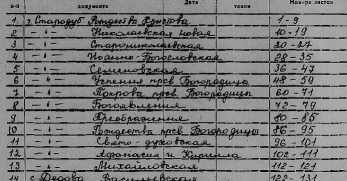 п-п документа Дата тация Номера листов
1. г. Стародуб Рождества Христова 1-9
2 —"— Николаевская новая 10-19
3 —"— Старониколаевская 20-27
4 —"— Иоанно-Богословская 28-35
5 —"— Семеновская 36-47
6 —"— Успения прев. Богородицы 48-59
7 —"— Покрова прев. Богородицы 60-71
8 —"— Богоявления 72-79
9 —"— Преображения 80-85
10 —"— Рождества прев Богородицы 86-95
11 —"— Свято-духовская 96-101
12 —"— Афанасия и Кирилла 102-111
13 —"— Михайловская 112-121
14 с. Дедово Василевская 122-131